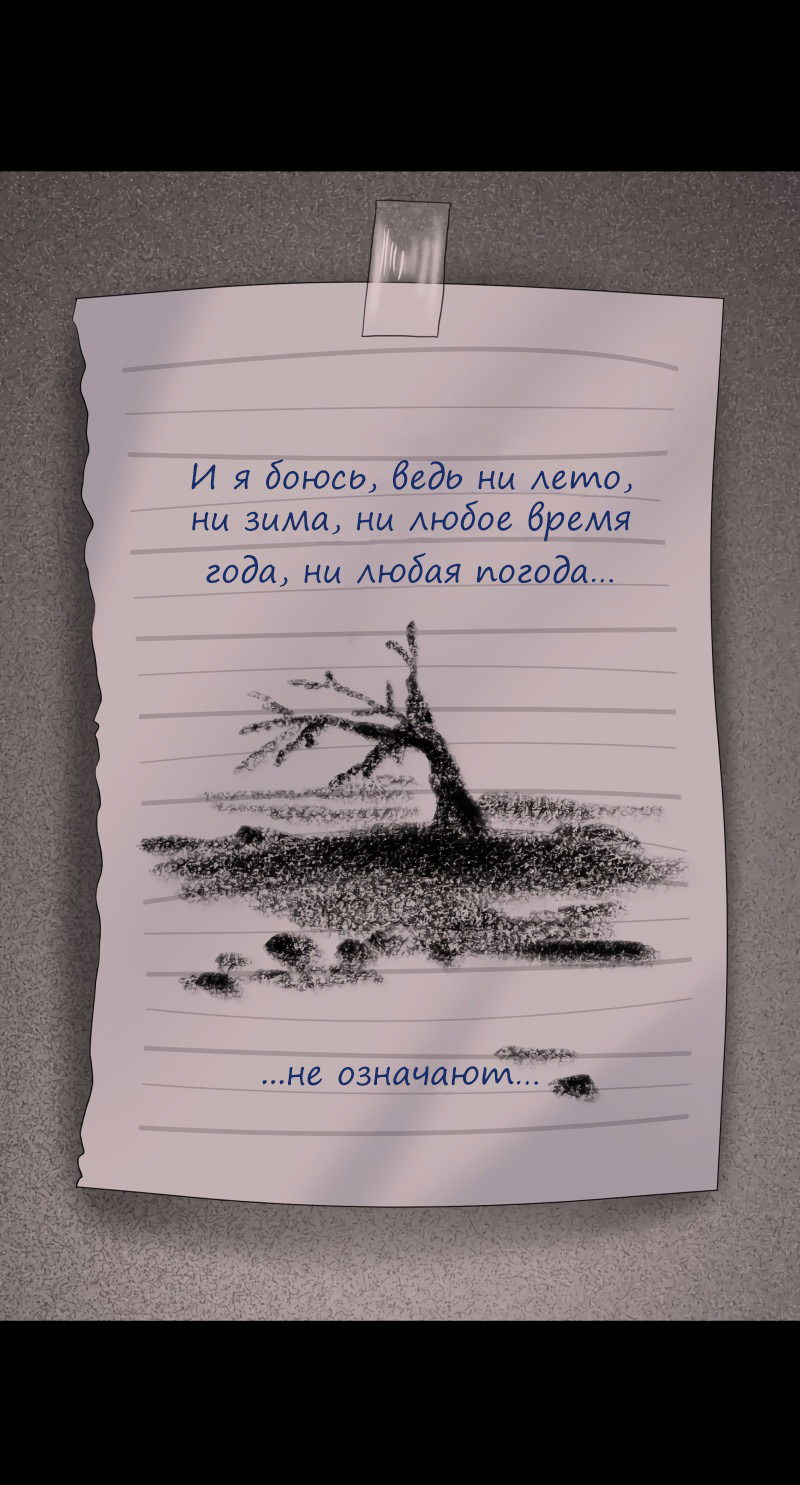 И я боюсь, ведь ни лето,
ни зима, ни любое время
года, ни любая погода...
...не означают...